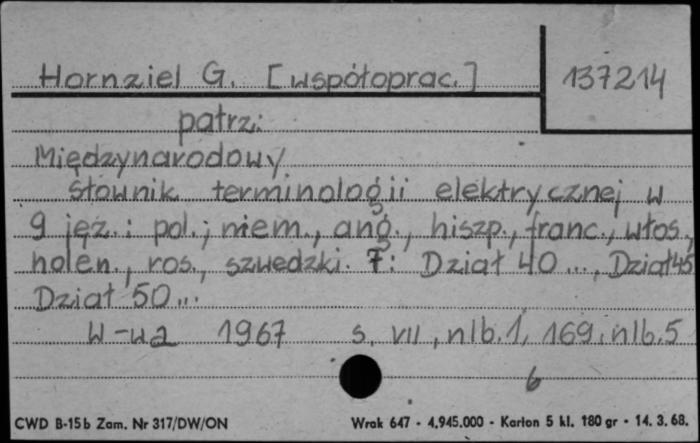 Hornziel G. [współoprac.] 137214
patrz:
Międzynarodowy
słownik terminologii elektrycznej w
9 jęz.: pol., niem., ang., hiszp., franc., włos.,
holen., ros., szwedzki. 7: Dział 40..., Dział 45
Dział 50...
W-wa 1967 s. VII, nlb.1, 169, nlb.5
6
CWD B-15b Zam. Nr 317/DW/ON Wrak 647 - 4.945.000 - Karton 5 kl. 180 gr - 14. 3. 68.